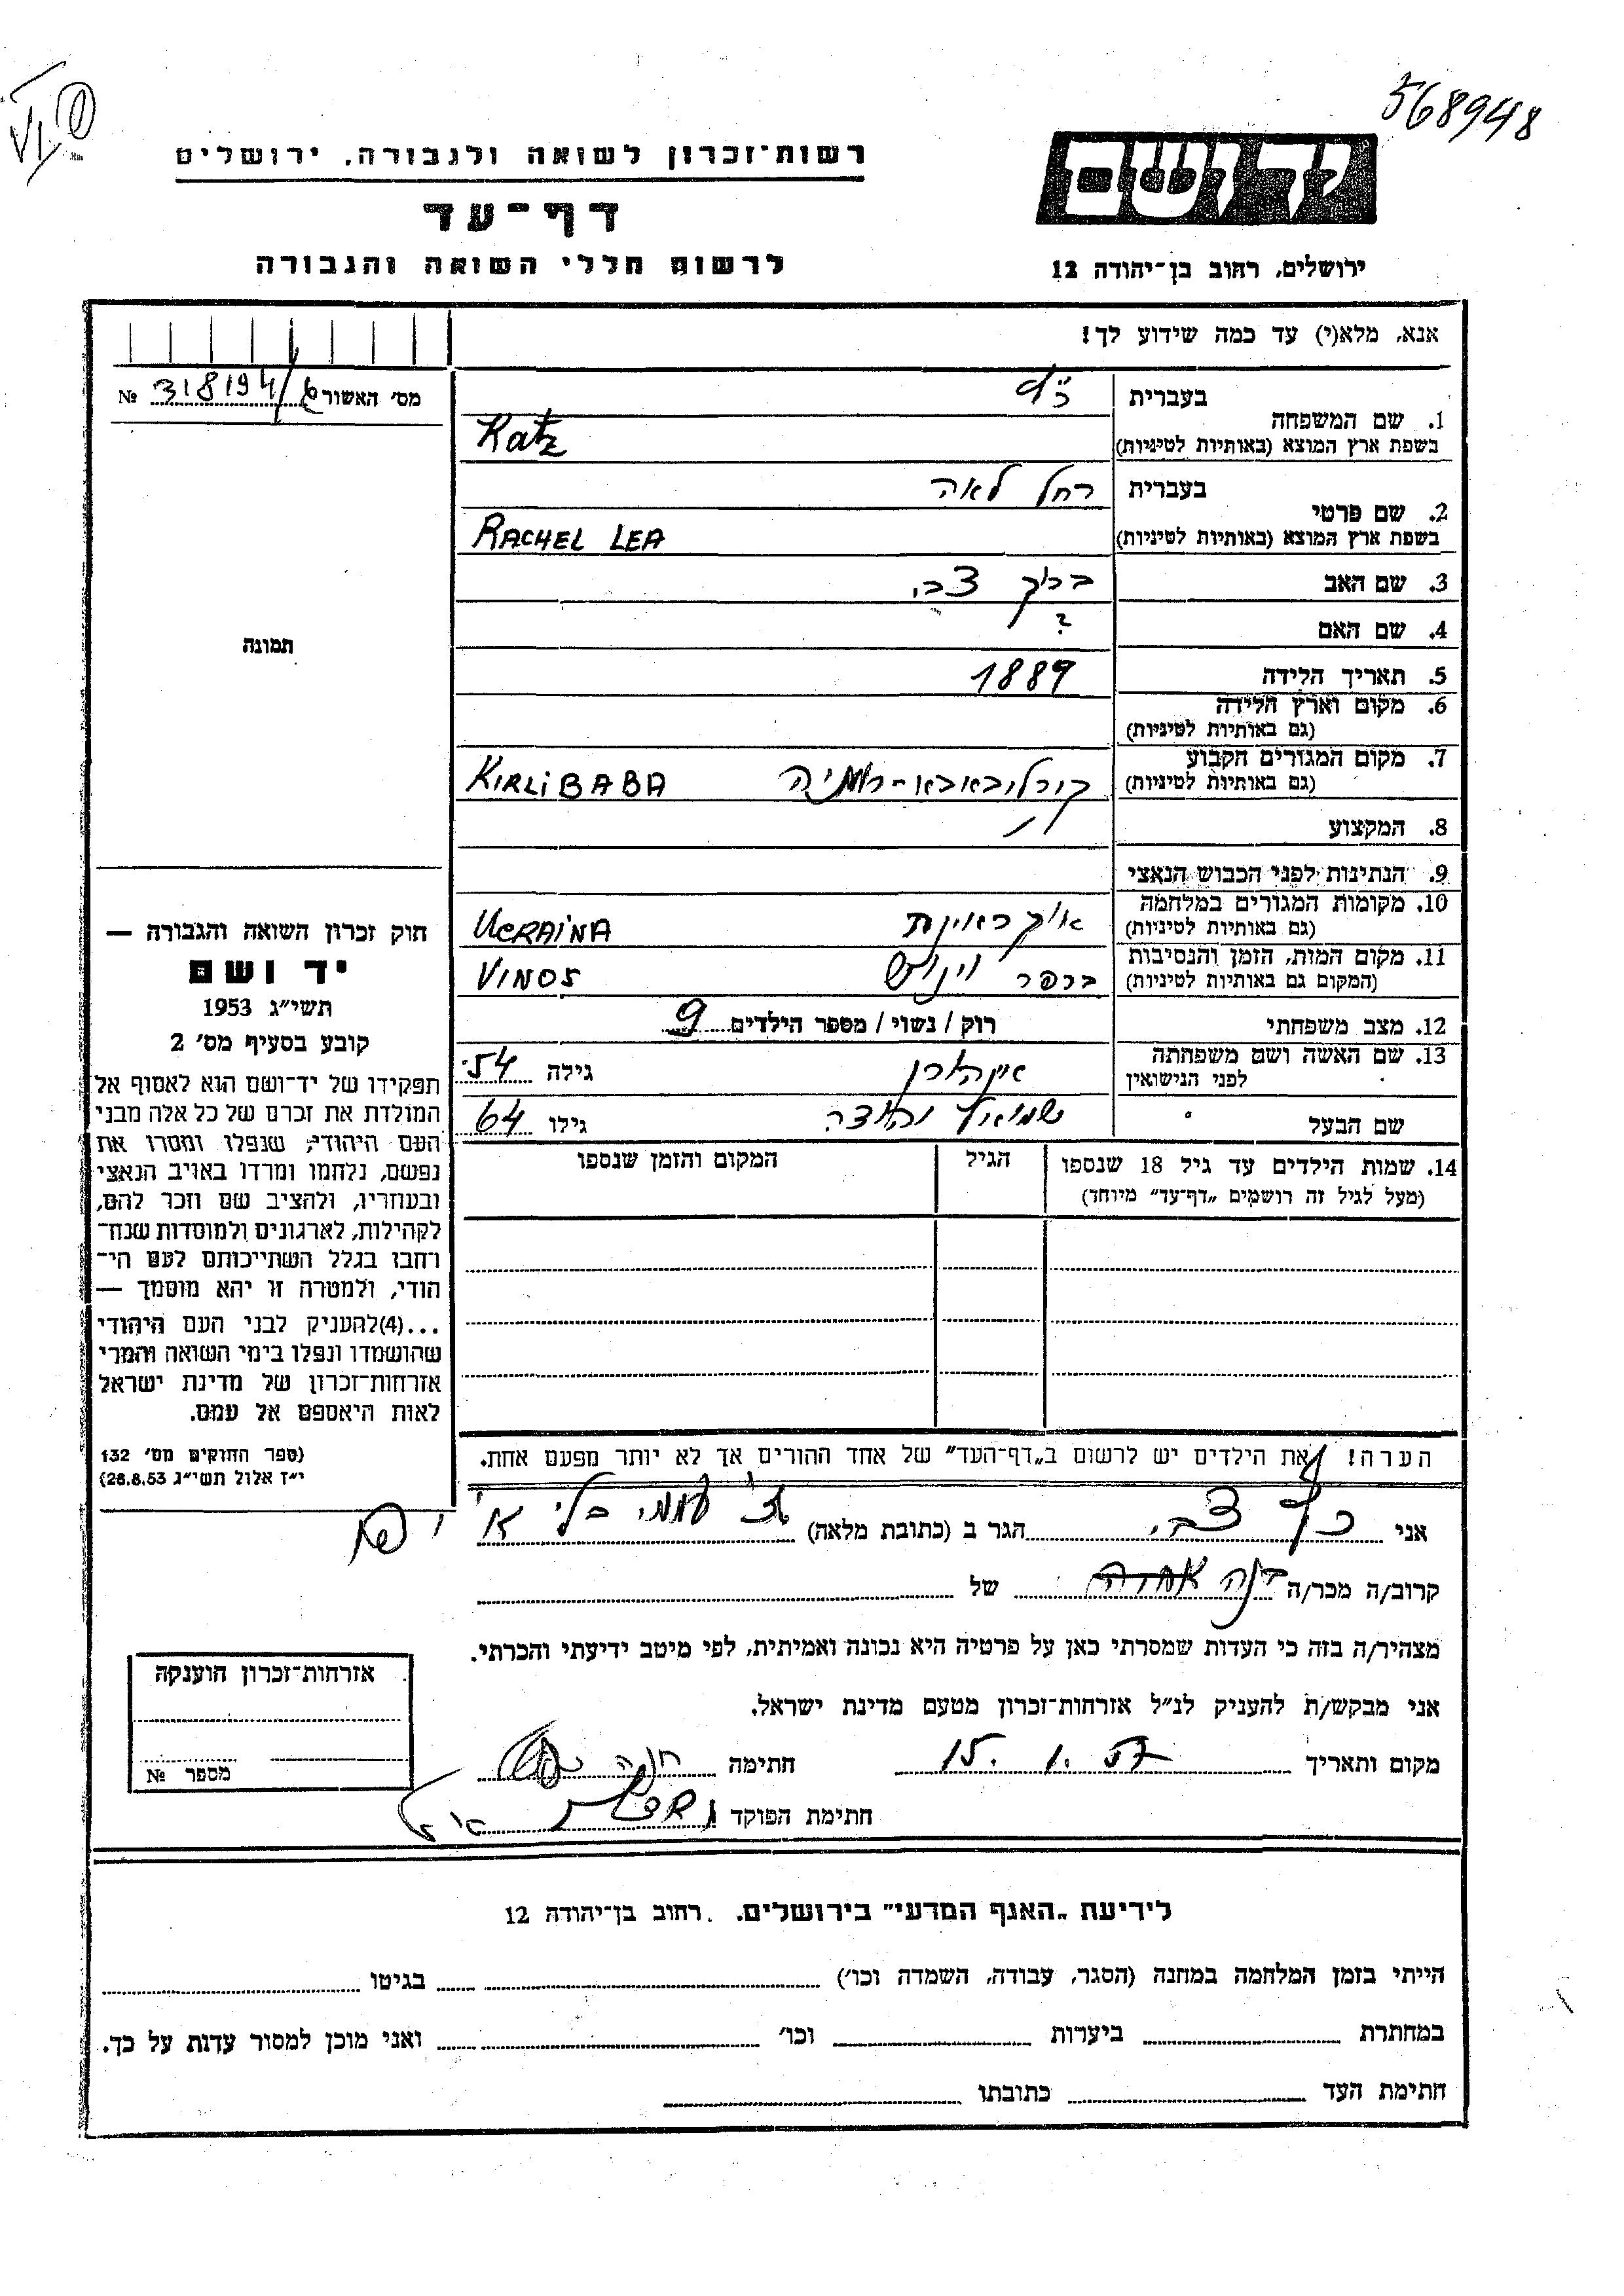 568948
VI
רשות־זכרון לשואה ולגבורה, ירושלים
יד ושם
דף־עד
לרשום חללי השואה והגבורה
ירושלים, רחוב בן־יהודה 12
אנא, מלא(י) עד כמה שידוע לך!
מס׳ האשור 318194/6 №
תמונה
1. שם המשפחה
בעברית כ״ץ
בשפת ארץ המוצא (באותיות לטיניות) Katz
2. שם פרטי
בעברית רחל לאה
בשפת ארץ המוצא (באותיות לטיניות) RACHEL LEA
3. שם האב ברוך צבי
4. שם האם ?
5. תאריך הלידה 1889
6. מקום וארץ הלידה
(גם באותיות לטיניות)
7. מקום המגורים הקבוע
(גם באותיות לטיניות) קירליבאבא - רומניה KIRLIBABA
8. המקצוע
9. הנתינות לפני הכבוש הנאצי
10. מקומות המגורים במלחמה
(גם באותיות לטיניות) אוקראינה UCRAINA
11. מקום המות, הזמן והנסיבות
(המקום גם באותיות לטיניות) בכפר וינוש VINOS
12. מצב משפחתי רוק / נשוי / מספר הילדים 9
13. שם האשה ושם משפחתה
לפני הנישואין איינהורן גילה 54
שם הבעל שמואל גילו 64
14. שמות הילדים עד גיל 18 שנספו
(מעל לגיל זה רושמים „דף־עד״ מיוחד)
הגיל
המקום והזמן שנספו
הערה! את הילדים יש לרשום ב„דף־העד״ של אחד ההורים אך לא יותר מפעם אחת.
חוק זכרון השואה והגבורה —
יד ושם
תשי״ג 1953
קובע בסעיף מס׳ 2
תפקידו של יד־ושם הוא לאסוף אל
המולדת את זכרם של כל אלה מבני
העם היהודי, שנפלו ומסרו את
נפשם, נלחמו ומרדו באויב הנאצי
ובעוזריו, ולהציב שם וזכר להם,
לקהילות, לארגונים ולמוסדות שנח־
רחבו בגלל השתייכותם לעם הי־
הודי, ולמטרה זו יהא מוסמך —
...(4)להעניק לבני העם היהודי
שהושמדו ונפלו בימי השואה והמרי
אזרחות־זכרון של מדינת ישראל
לאות היאספם אל עמם.
(ספר החוקים מס׳ 132
י״ז אלול תשי״ג 28.8.53)
אני כץ צבי הגר ב (כתובת מלאה)
קרוב/ה מכר/ה של
מצהיר/ה בזה כי העדות שמסרתי כאן על פרטיה היא נכונה ואמיתית, לפי מיטב ידיעתי והכרתי.
אני מבקש/ת להעניק לנ״ל אזרחות־זכרון מטעם מדינת ישראל.
מקום ותאריך 15. 1. 57 חתימה
חתימת הפוקד
אזרחות־זכרון הוענקה
מספר №
לידיעת „האגף המדעי״ בירושלים. רחוב בן־יהודה 12
הייתי בזמן המלחמה במחנה (הסגר, עבודה, השמדה וכו׳) בגיטו
במחתרת ביערות וכו׳ ואני מוכן למסור עדות על כך.
חתימת העד כתובתו